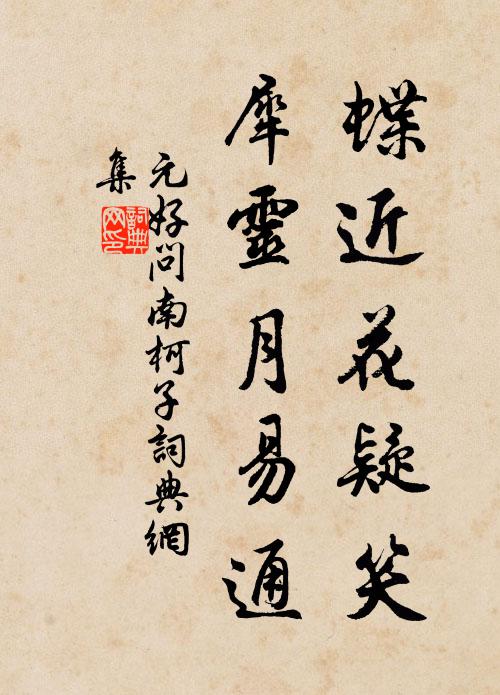 蝶近花疑笑
犀靈月易通
元好問南柯子詞典網
集
詞典
网印